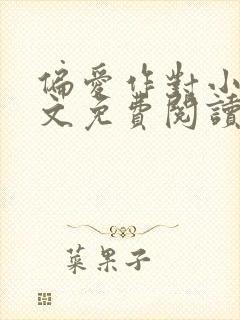 偏愛作對小
文免費閱讀
菜果子